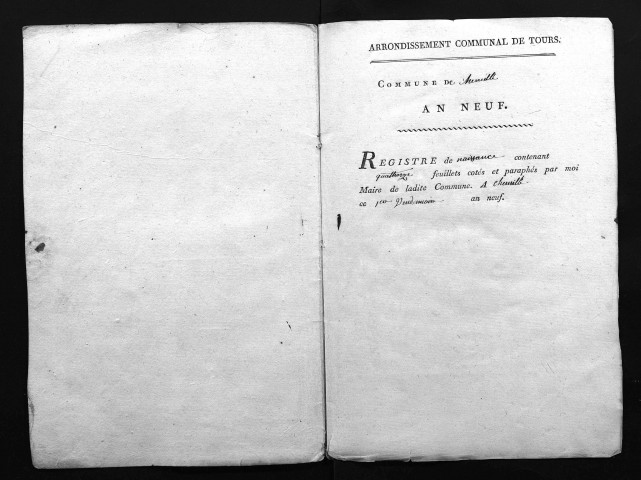 ARRONDISSEMENT COMMUNAL DE TOURS.
COMMUNE DE Chemillé
AN NEUF.
REGISTRE de naissance contenant
quatorze feuillets cotés et paraphés par moi
Maire de ladite Commune. A Chemillé
ce 1er Vendemiaire an neuf.